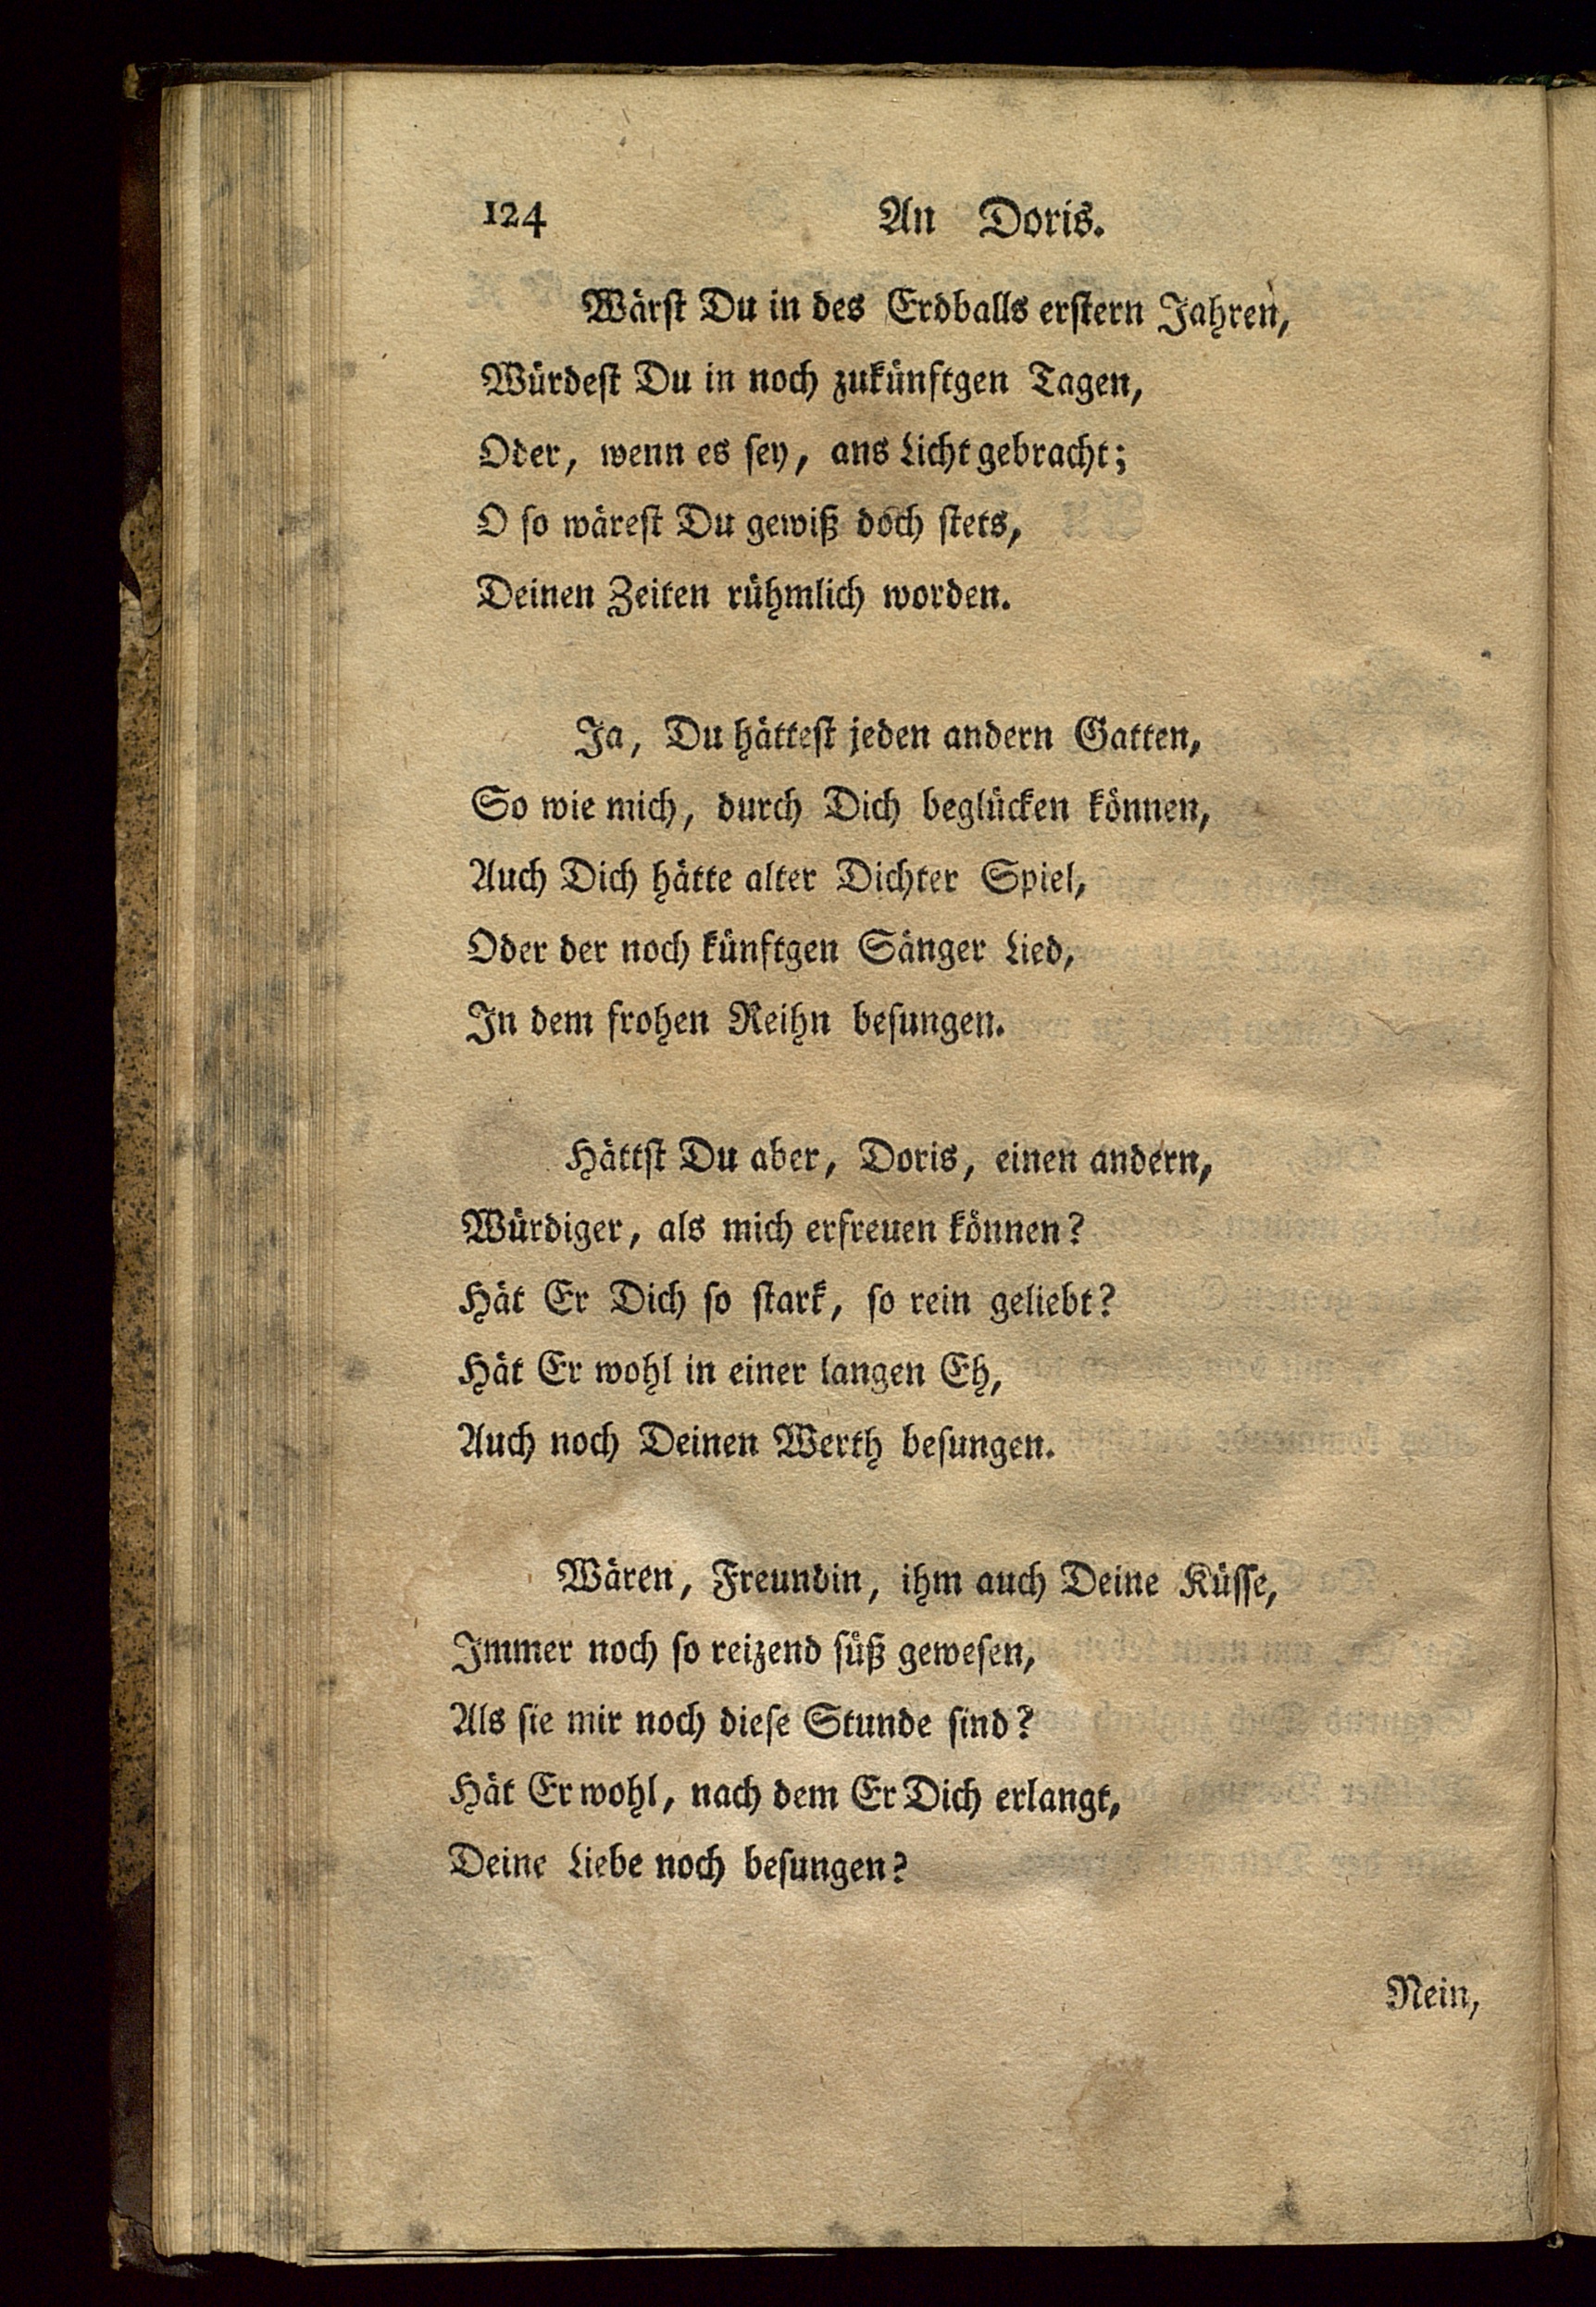 124 An Doris.
Wärst Du in des Erdballs erstern Jahren,
Würdest Du in noch zukünftgen Tagen,
Oder, wenn es sey, ans Licht gebracht;
O so wärest Du gewiß doch stets,
Deinen Zeiten rühmlich worden.
Ja, Du hättest jeden andern Gatten,
So wie mich, durch Dich beglücken können,
Auch Dich hätte alter Dichter Spiel,
Oder der noch künftgen Sänger Lied,
In dem frohen Reihn besungen.
Hättst Du aber, Doris, einen andern,
Würdiger, als mich erfreuen können?
Hät Er Dich so stark, so rein geliebt?
Hät Er wohl in einer langen Eh,
Auch noch Deinen Werth besungen.
Wären, Freundin, ihm auch Deine Küsse,
Immer noch so reizend süß gewesen,
Als sie mir noch diese Stunde sind?
Hät Er wohl, nach dem Er Dich erlangt,
Deine Liebe noch besungen?
Nein,